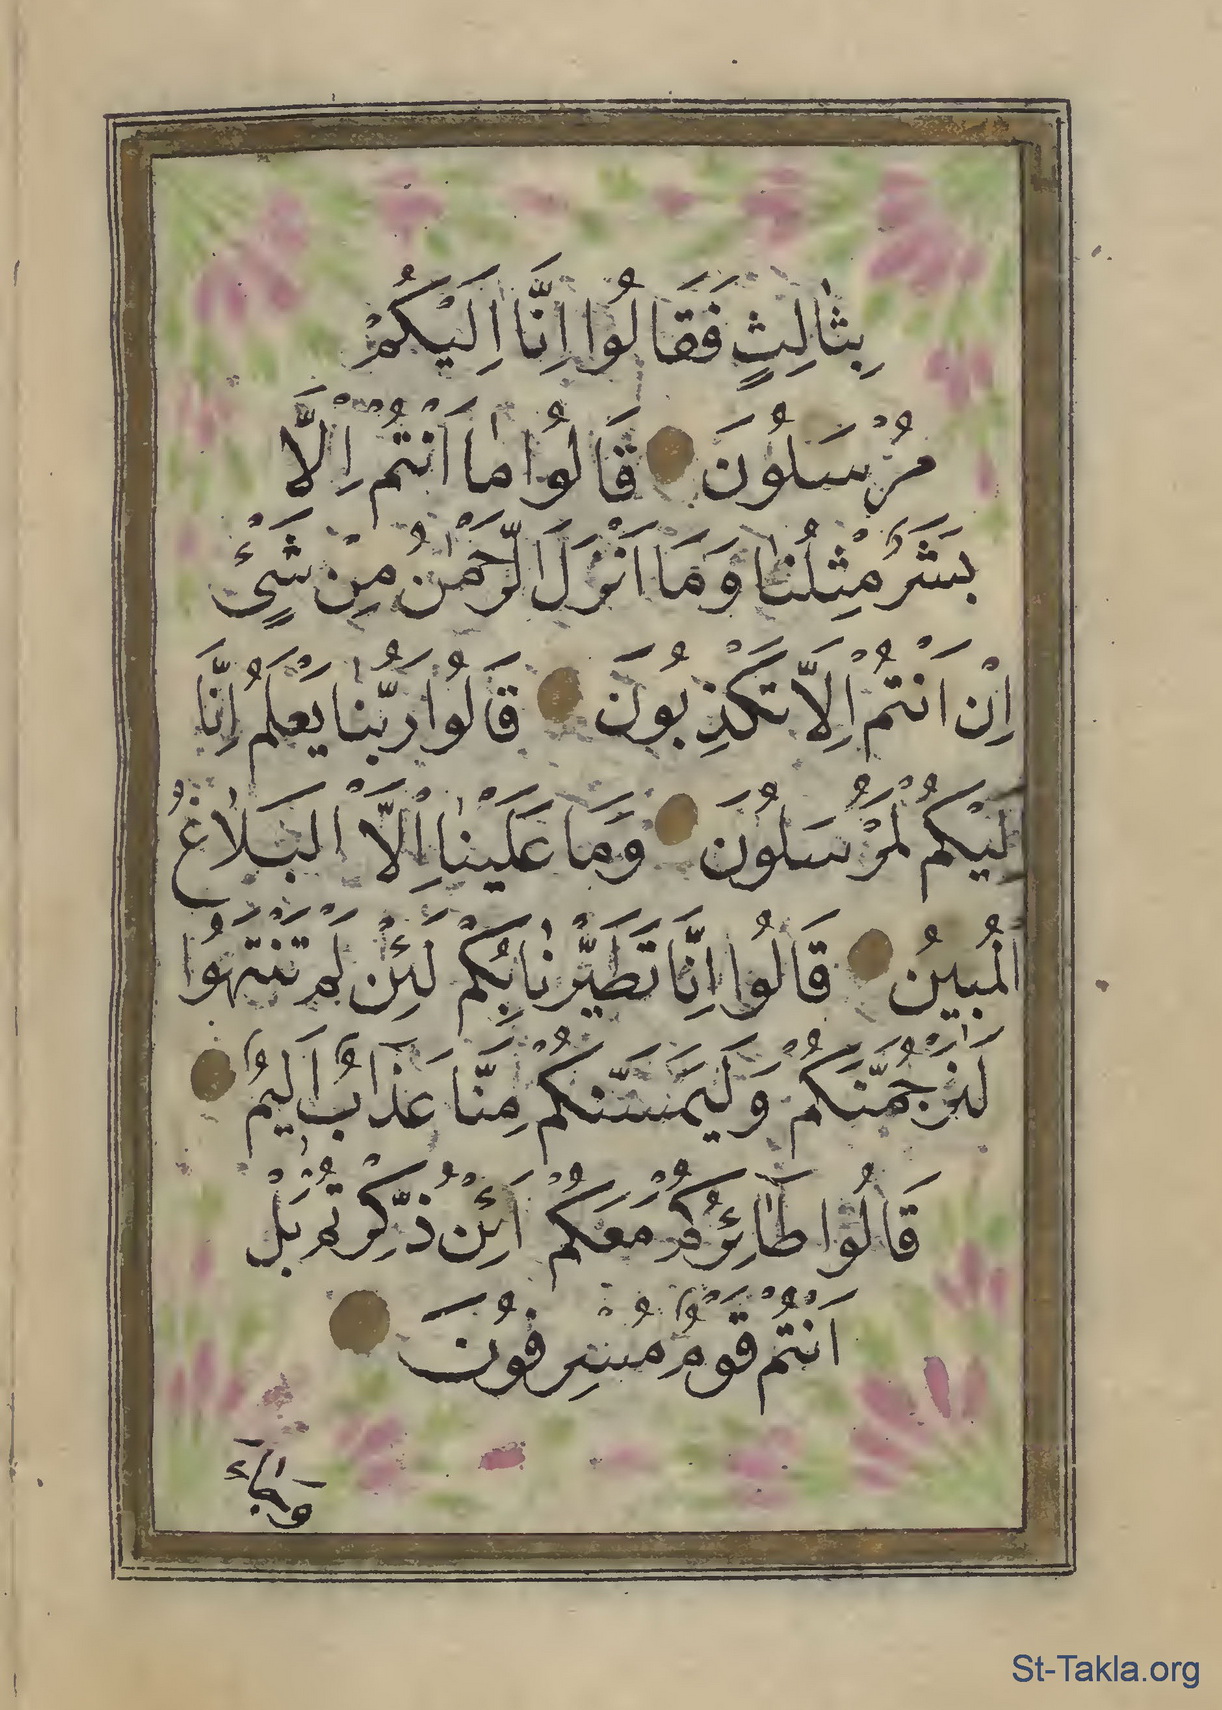 بِثَالِثٍ فَقَالُوا اِنَّا اِلَيْكُمْ
مُرْسَلُونَ قَالُوا مَا اَنْتُمْ اِلَّا
بَشَرٌ مِثْلُنَا وَمَا اَنْزَلَ الرَّحْمٰنُ مِنْ شَيْءٍ
اِنْ اَنْتُمْ اِلَّا تَكْذِبُونَ قَالُوا رَبُّنَا يَعْلَمُ اِنَّا
لَيْكُمْ لَمُرْسَلُونَ وَمَا عَلَيْنَا اِلَّا الْبَلَاغُ
الْمُبِينُ قَالُوا اِنَّا تَطَيَّرْنَا بِكُمْ لَئِنْ لَمْ تَنْتَهُوا
لَنَرْجُمَنَّكُمْ وَلَيَمَسَّنَّكُمْ مِنَّا عَذَابٌ اَلِيمٌ
قَالُوا طَآئِرُكُمْ مَعَكُمْ اَئِنْ ذُكِّرْتُمْ بَلْ
اَنْتُمْ قَوْمٌ مُسْرِفُونَ
وَجَاءَ
St-Takla.org